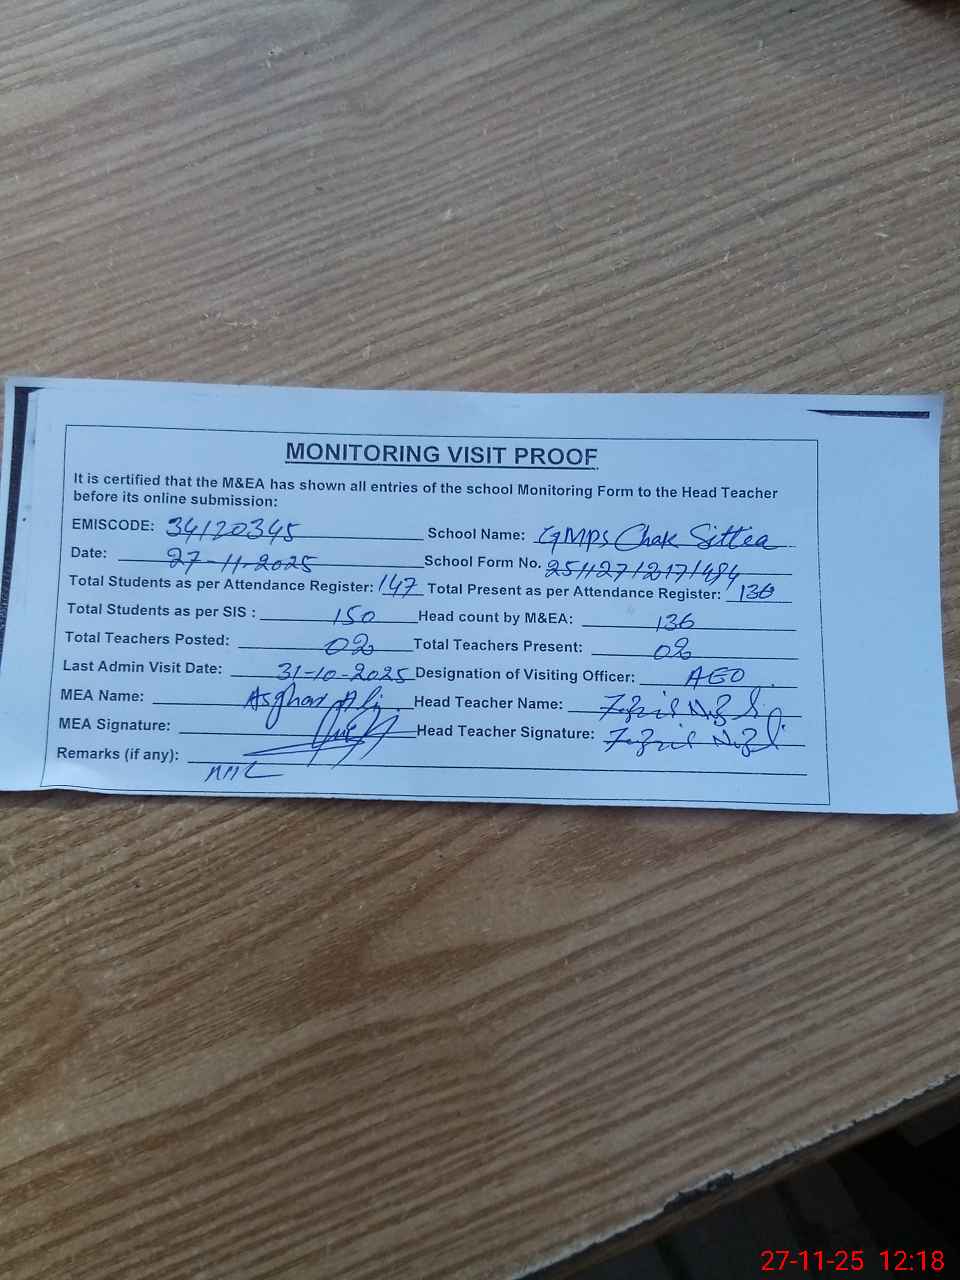 MONITORING VISIT PROOF
It is certified that the M&EA has shown all entries of the school Monitoring Form to the Head Teacher
before its online submission:
EMISCODE: 34120345 School Name: GMPS Chak Sittea
Date: 27-11-2025 School Form No.
Total Students as per Attendance Register: 147 Total Present as per Attendance Register: 136
Total Students as per SIS : 150 Head count by M&EA: 136
Total Teachers Posted: 02 Total Teachers Present: 02
Last Admin Visit Date: 31-10-2025 Designation of Visiting Officer: AEO
MEA Name: Asghar Ali Head Teacher Name:
MEA Signature: Head Teacher Signature:
Remarks (if any):
27-11-25 12:18